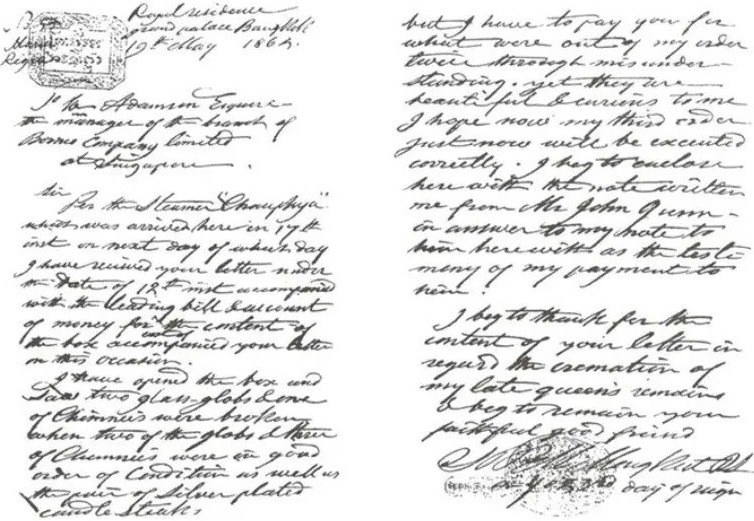 Royal residence
Grand palace Bangkok
19th May 1864.
To Wm Adamson Esquire
the manager of the branch of
Borneo Company limited
at Singapore.
Sir
Per the Steamer "Chauphya"
which was arrived here in 17th
inst on next day of which day
I have recived your letter under
the date of 12th inst accompanied
with the leading bill & account
of money for the content of
the box accompanied your letter
on this occasion.
I have opened the box and
Saw two glass-globs & one
of Chimneis were broken
when two of the globs & three
of Chimneis were in good
order of Condition as well as
the pair of Silver plated
candle steaks
but I have to pay you for
what were out of my order
twice through misunder-
standing. yet they are
beautiful & curious to me
I hope now my third order
just now will be executed
correctly. I beg to enclose
here with the note written
me from Mr John Gunn
in answer to my note to
him herewith as the testi
mony of my payment to
him.
I beg to thank for the
content of your letter in
regard the cremation of
my late queen's remains
& beg to remain your
faithful good friend
day of reign